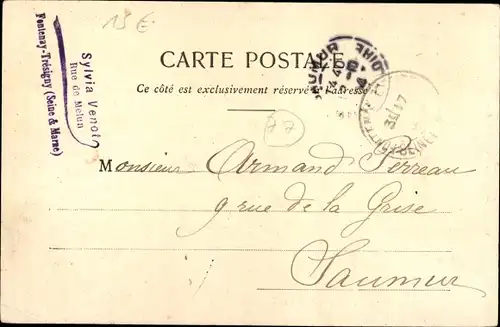 13 €
Sylvia Venot
Rue de Melun
Fontenay-Trésigny (Seine & Marne)
CARTE POSTALE
Ce côté est exclusivement réservé à l'adresse
77
Monsieur Armand Perreau
9 rue de la Grise
Saumur